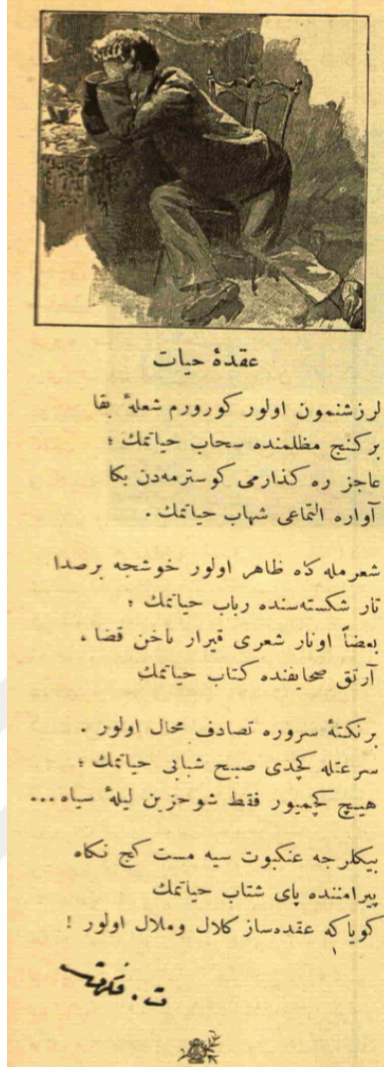 عقدهٔ حیات
لرزشنمون اولور کورورم شعلهٔ بقا
برکنج مظلمنده سحاب حیاتمك ؛
عاجز ره کذارمی کوسترمه‌دن بکا
آواره التماعی شهاب حیاتمك .
شعرمله کاه ظاهر اولور خوشجه برصدا
تار شکسته‌سنده رباب حیاتمك ؛
بعضاً اوتار شعری قیرار ناخن قضا ،
آرتق صحایفنده کتاب حیاتمك
برنکتهٔ سروره تصادف محال اولور .
سرعتله کچدی صبح شبابی حیاتمك ؛
هیچ کچمیور فقط شوحزین لیلهٔ سیاه...
بیکلرجه عنکبوت سیه مست کج نکاه
پیرامننده پای شتاب حیاتمك
کویاکه عقده‌ساز کلال وملال اولور !
ت . فکرت